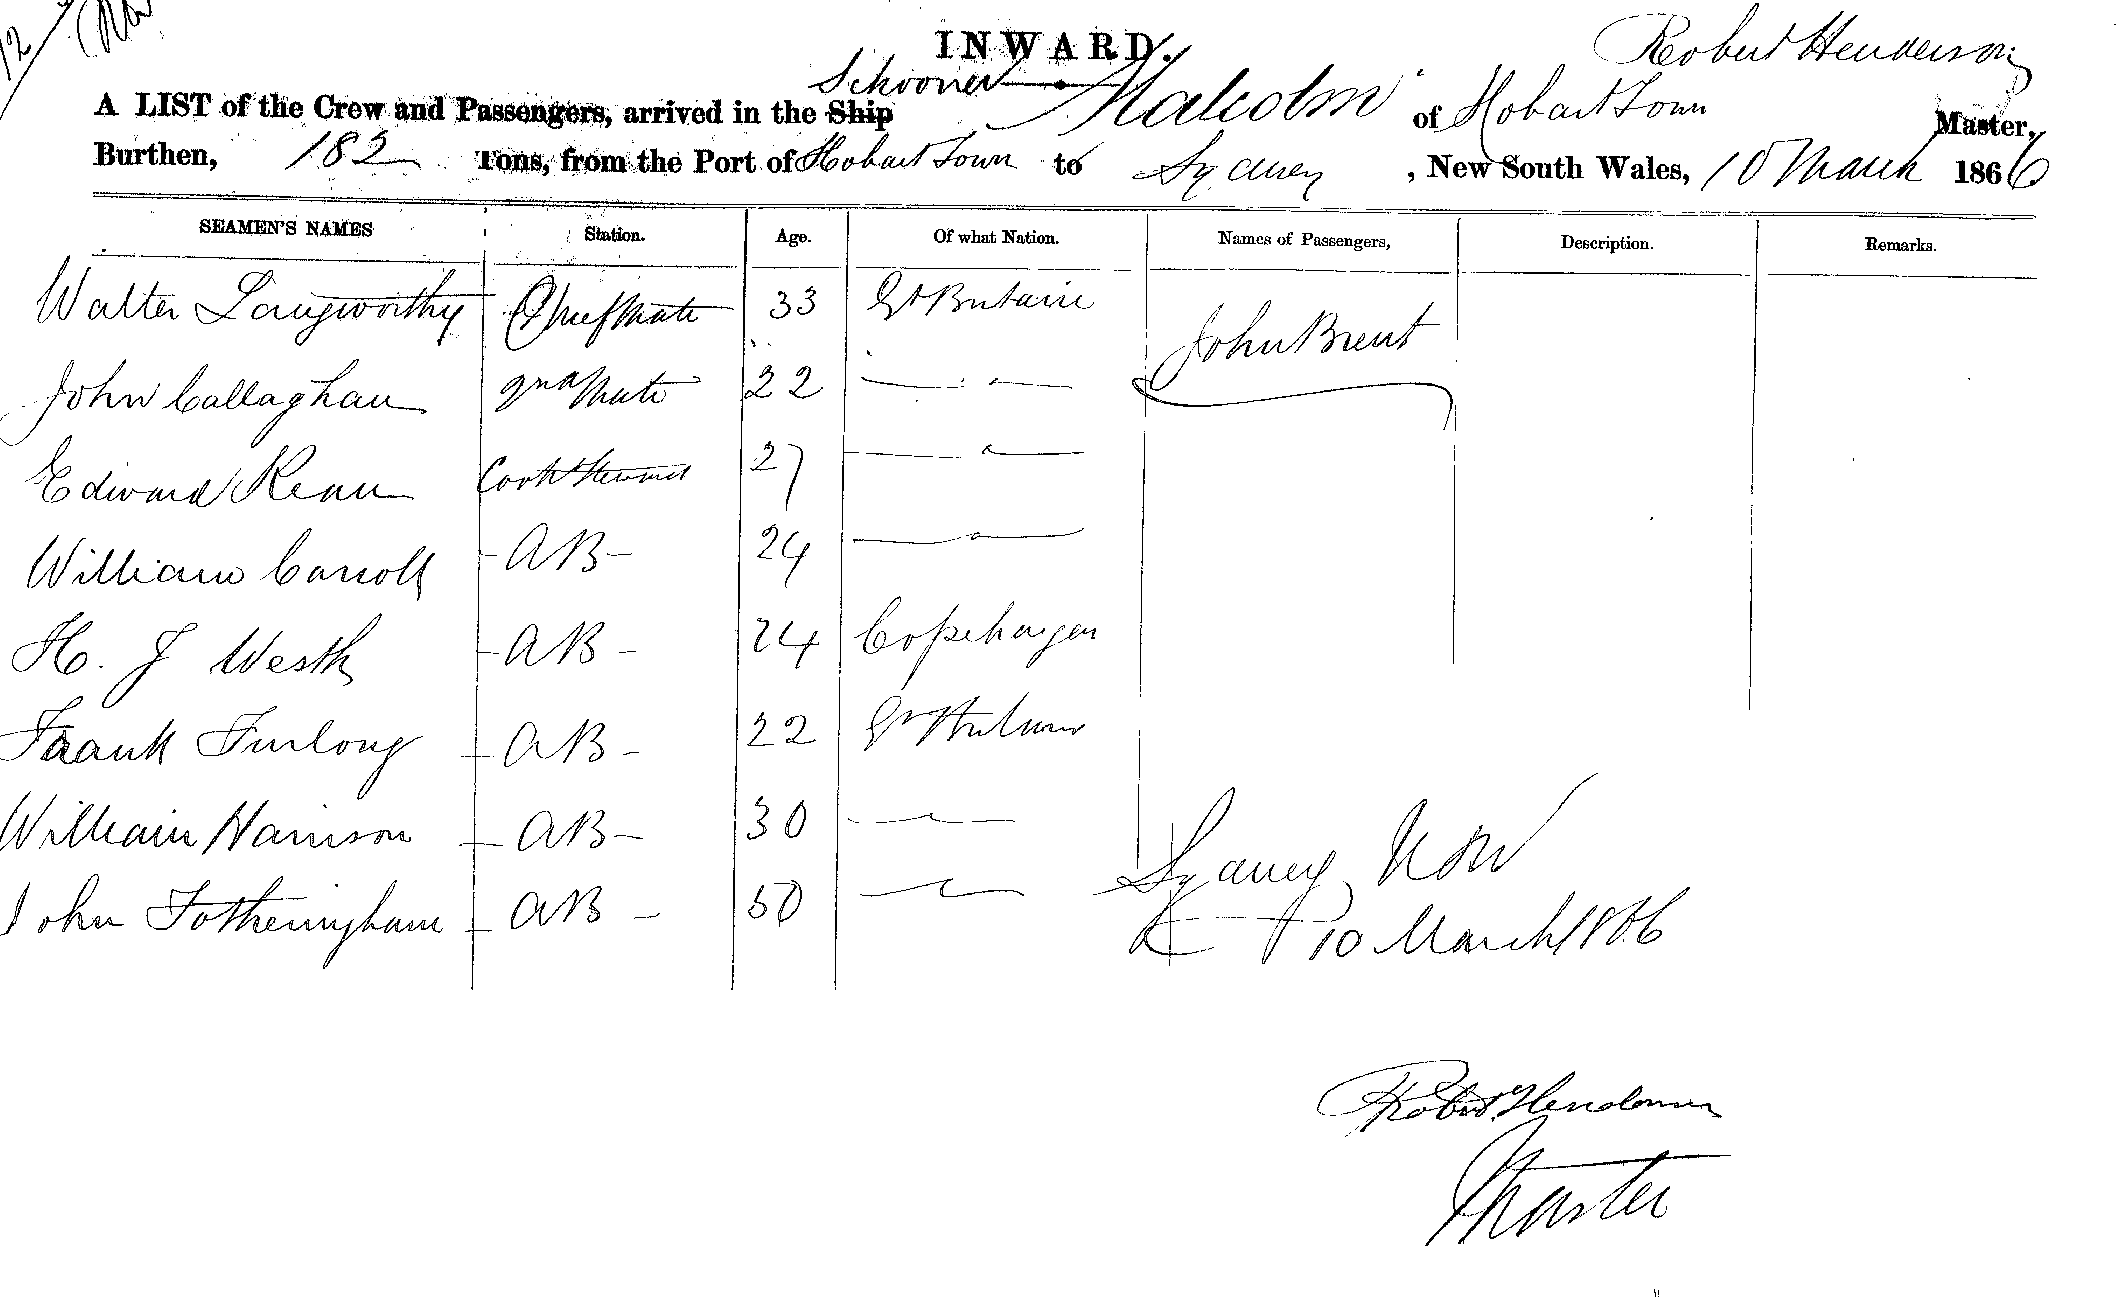 12
INWARD.
Robert Henderson
Schooner
A LIST of the Crew and Passengers, arrived in the Ship Malcolm of Hobart Town Master,
Burthen, 182 Tons, from the Port of Hobart Town to Sydney, New South Wales, 10 March 1866
SEAMEN'S NAMES Station. Age. Of what Nation. Names of Passengers, Description. Remarks.
Walter Langworthy Chief Mate 33 Gt Britain
John Brent
John Callaghan 2nd Mate 22 — " —
Edward Kean Cook & Steward 27 — " —
William Carroll AB 24 — " —
H. J Westh AB 24 Copehagen
Frank Furlong AB 22 Gt Britain
William Harrison AB 30 — " —
John Fotheringham AB 50 — " —
Sydney NSW
10 March 1866
Robert Henderson
Master